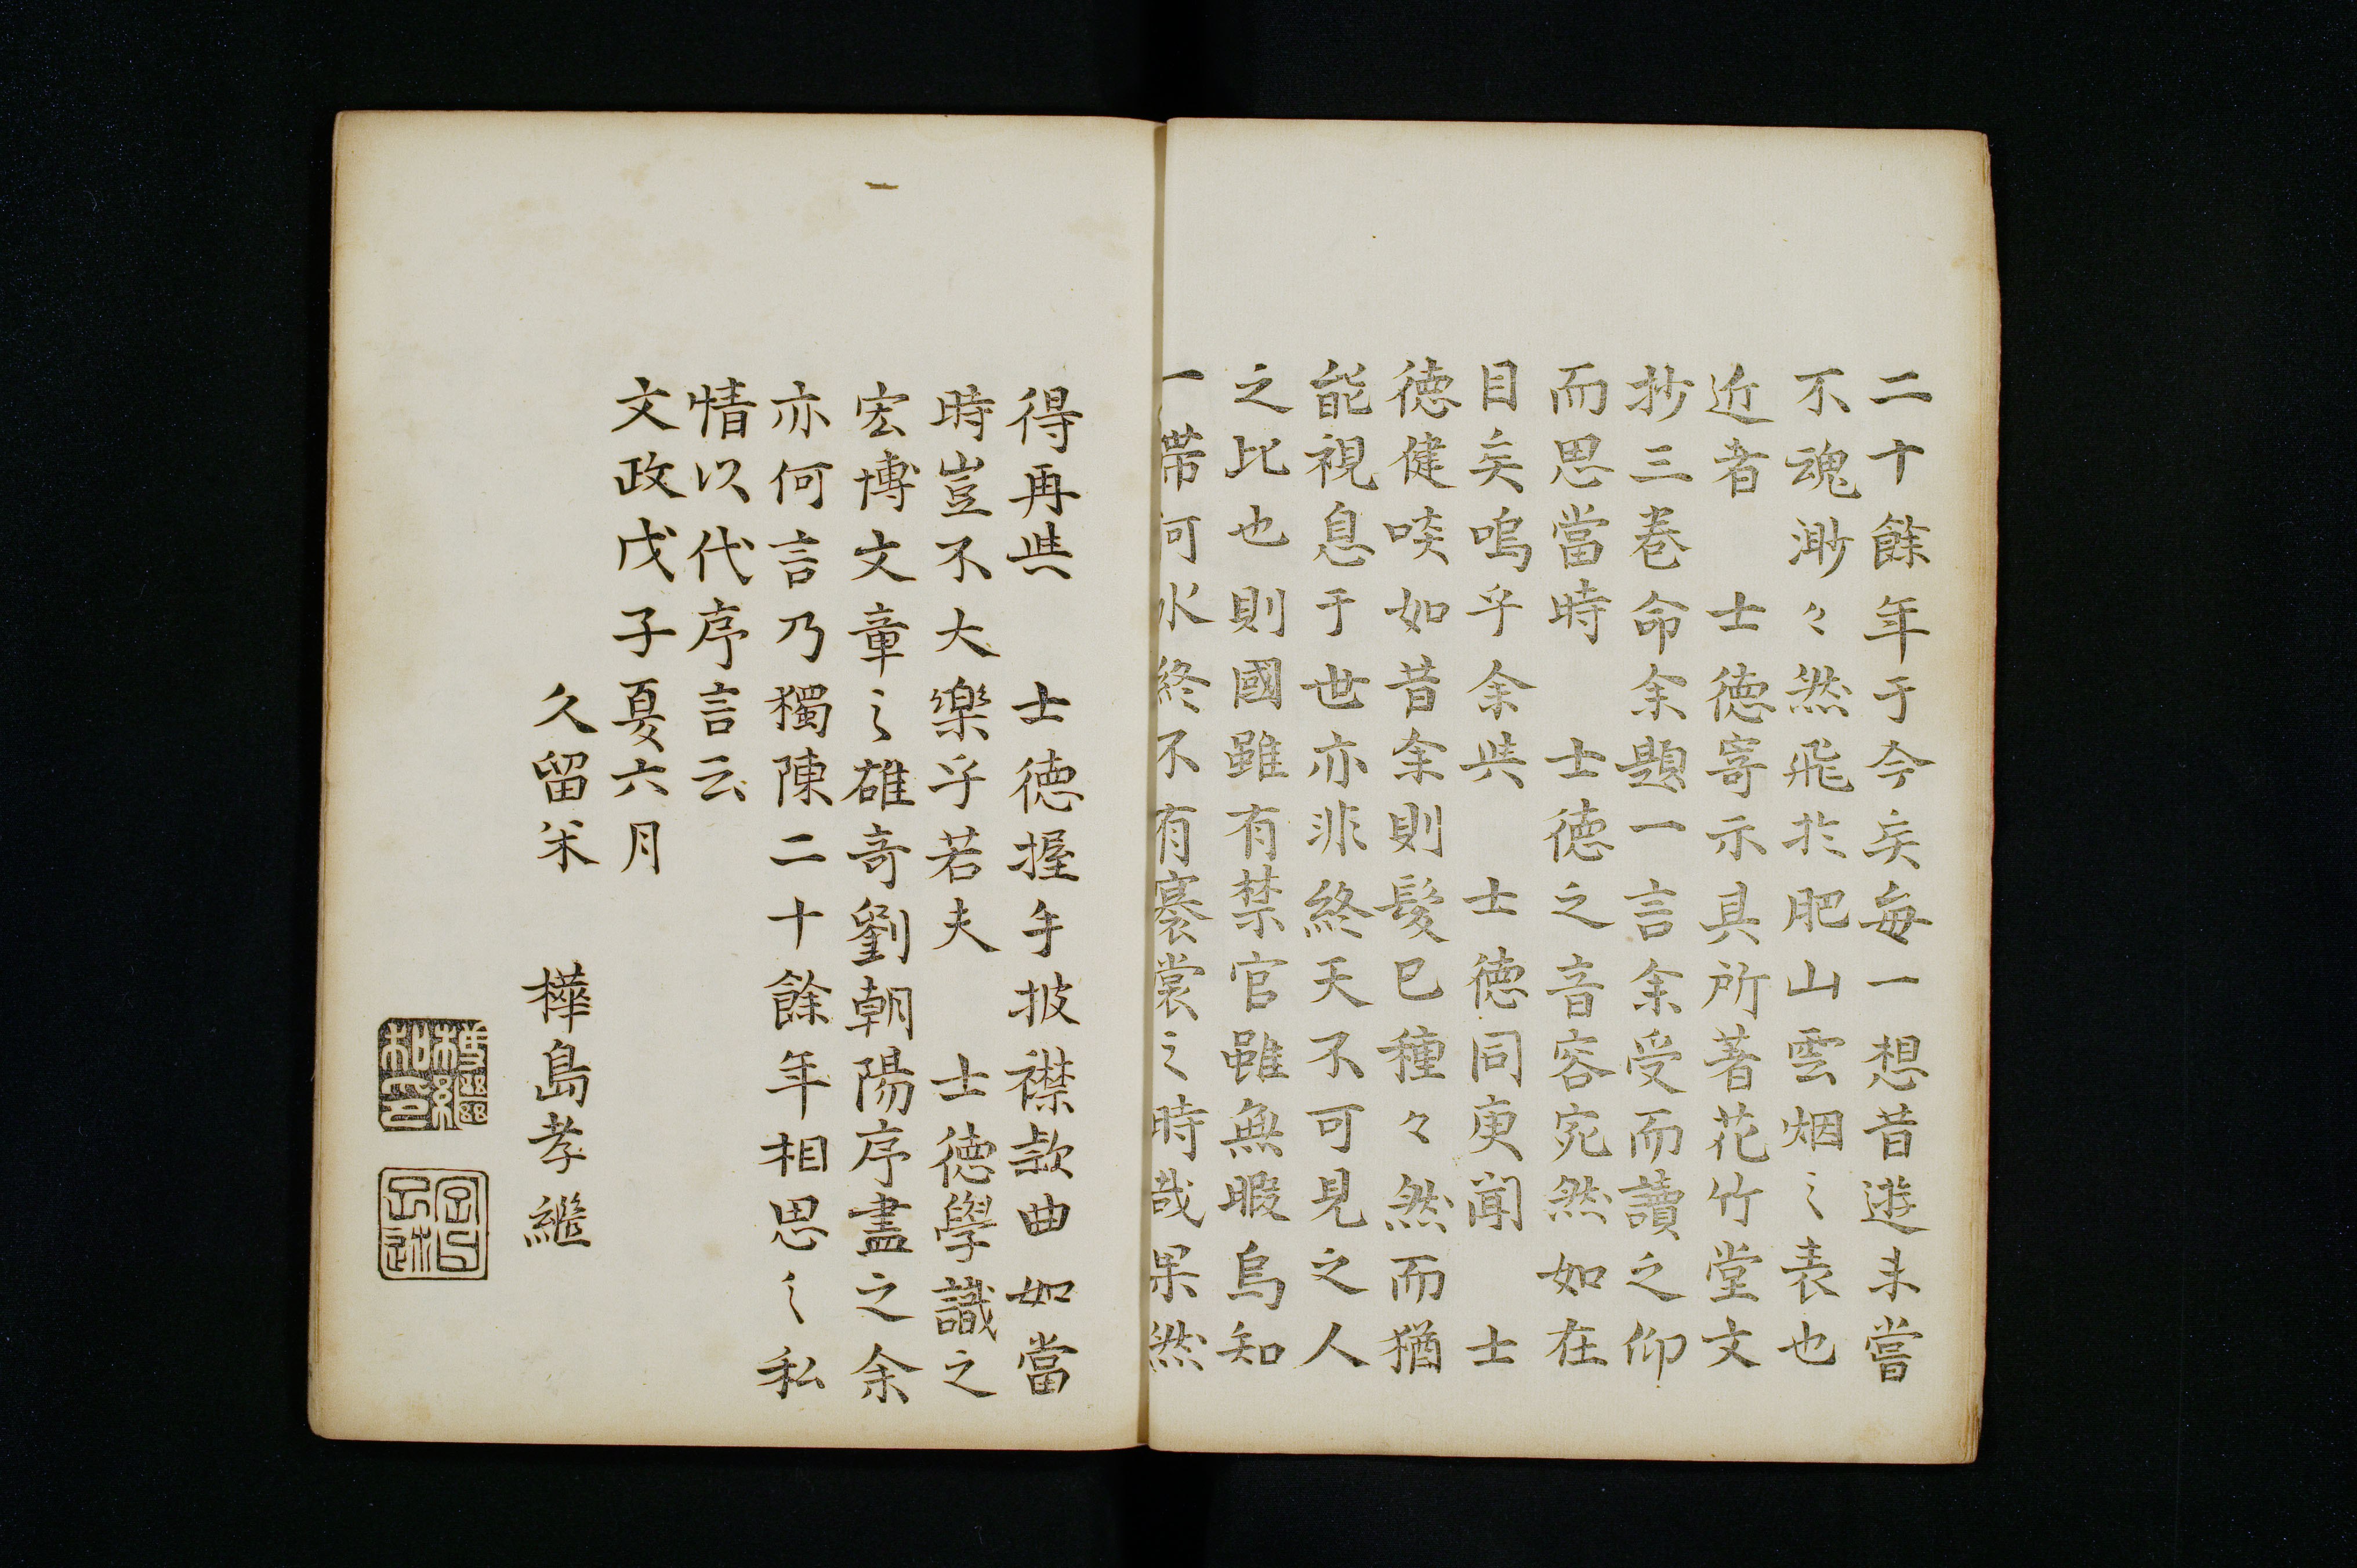 二十餘年于今矣每一想昔遊未嘗
不魂渺々然飛於肥山雲烟之表也
近者　士德寄示具所著花竹堂文
抄三巻命余題一言余受而讀之仰
而思當時　士德之音容宛然如在
目矣嗚乎余與　士德同庚聞　士
德健啖如昔余則髮已種々然而猶
能視息于世亦非終天不可見之人
之比也則國雖有禁官雖無暇烏知
一帶河水終不有褰裳之時哉果然
得再與　士德握手披襟款曲如當
時豈不大樂乎若夫　士德學識之
宏博文章之雄奇劉朝陽序盡之余
亦何言乃獨陳二十餘年相思之私
情以代序言云
文政戊子夏六月
久留米　樺島孝繼